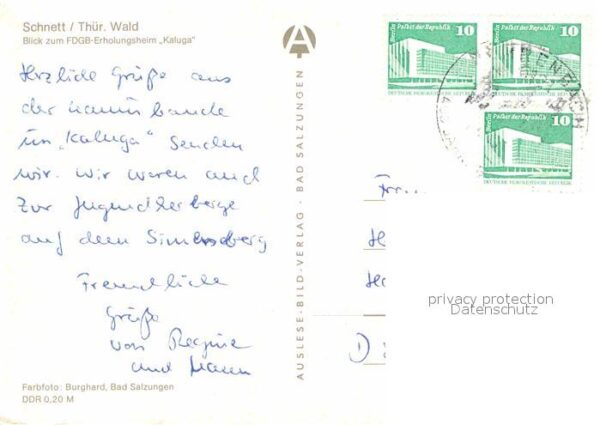 Schnett / Thür. Wald
Blick zum FDGB-Erholungsheim „Kaluga"
Herzliche Grüße aus
der
im „Kaluga" senden
wir. Wir waren auch
zur Jugendherberge
auf dem Simmersberg
Freundliche
Grüße
von Regina
und Mann
Farbfoto: Burghard, Bad Salzungen
DDR 0,20 M
AUSLESE-BILD-VERLAG · BAD SALZUNGEN
Berlin Palast der Republik 10
DEUTSCHE DEMOKRATISCHE REPUBLIK
Berlin Palast der Republik 10
DEUTSCHE DEMOKRATISCHE REPUBLIK
Berlin Palast der Republik 10
DEUTSCHE DEMOKRATISCHE REPUBLIK
privacy protection
Datenschutz